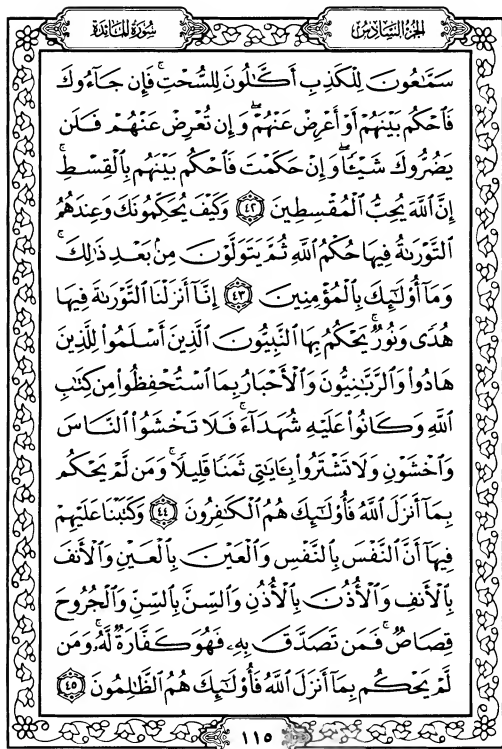 الجزء السادس
سورة المائدة
سَمَّٰعُونَ لِلْكَذِبِ أَكَّٰلُونَ لِلسُّحْتِ ۚ فَإِن جَآءُوكَ
فَٱحْكُم بَيْنَهُمْ أَوْ أَعْرِضْ عَنْهُمْ ۖ وَإِن تُعْرِضْ عَنْهُمْ فَلَن
يَضُرُّوكَ شَيْـًٔا ۖ وَإِنْ حَكَمْتَ فَٱحْكُم بَيْنَهُم بِٱلْقِسْطِ ۚ
إِنَّ ٱللَّهَ يُحِبُّ ٱلْمُقْسِطِينَ ٤٢ وَكَيْفَ يُحَكِّمُونَكَ وَعِندَهُمُ
ٱلتَّوْرَىٰةُ فِيهَا حُكْمُ ٱللَّهِ ثُمَّ يَتَوَلَّوْنَ مِنۢ بَعْدِ ذَٰلِكَ ۚ
وَمَآ أُو۟لَـٰٓئِكَ بِٱلْمُؤْمِنِينَ ٤٣ إِنَّآ أَنزَلْنَا ٱلتَّوْرَىٰةَ فِيهَا
هُدًى وَنُورٌ ۚ يَحْكُمُ بِهَا ٱلنَّبِيُّونَ ٱلَّذِينَ أَسْلَمُوا۟ لِلَّذِينَ
هَادُوا۟ وَٱلرَّبَّـٰنِيُّونَ وَٱلْأَحْبَارُ بِمَا ٱسْتُحْفِظُوا۟ مِن كِتَـٰبِ
ٱللَّهِ وَكَانُوا۟ عَلَيْهِ شُهَدَآءَ ۚ فَلَا تَخْشَوُا۟ ٱلنَّاسَ
وَٱخْشَوْنِ وَلَا تَشْتَرُوا۟ بِـَٔايَـٰتِى ثَمَنًا قَلِيلًا ۚ وَمَن لَّمْ يَحْكُم
بِمَآ أَنزَلَ ٱللَّهُ فَأُو۟لَـٰٓئِكَ هُمُ ٱلْكَـٰفِرُونَ ٤٤ وَكَتَبْنَا عَلَيْهِمْ
فِيهَآ أَنَّ ٱلنَّفْسَ بِٱلنَّفْسِ وَٱلْعَيْنَ بِٱلْعَيْنِ وَٱلْأَنفَ
بِٱلْأَنفِ وَٱلْأُذُنَ بِٱلْأُذُنِ وَٱلسِّنَّ بِٱلسِّنِّ وَٱلْجُرُوحَ
قِصَاصٌ ۚ فَمَن تَصَدَّقَ بِهِۦ فَهُوَ كَفَّارَةٌ لَّهُۥ ۚ وَمَن
لَّمْ يَحْكُم بِمَآ أَنزَلَ ٱللَّهُ فَأُو۟لَـٰٓئِكَ هُمُ ٱلظَّـٰلِمُونَ ٤٥
١١٥